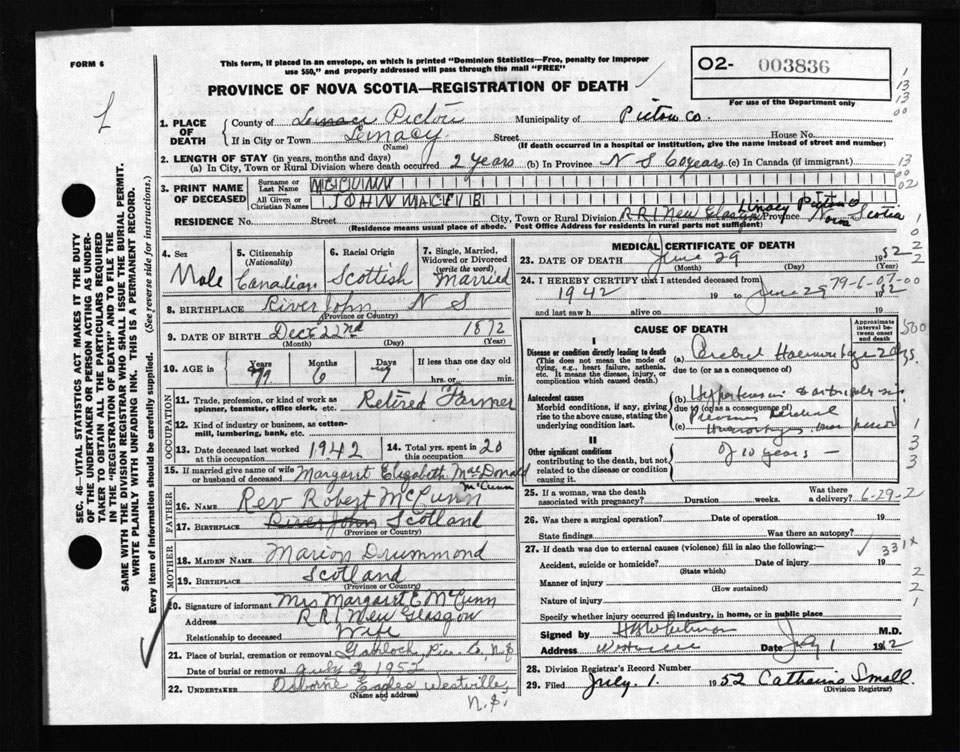 FORM 6
This form, if placed in an envelope, on which is printed "Dominion Statistics—Free, penalty for improper
use $50," and properly addressed will pass through the mail "FREE"
PROVINCE OF NOVA SCOTIA—REGISTRATION OF DEATH
O2- 003836
For use of the Department only
1. PLACE OF DEATH
County of Pictou Municipality of Pictou Co.
If in City or Town Street House No.
(Name) (If death occurred in a hospital or institution, give the name instead of street and number)
2. LENGTH OF STAY (in years, months and days)
(a) In City, Town or Rural Division where death occurred 2 years (b) In Province N S 60 years (c) In Canada (if immigrant)
3. PRINT NAME OF DECEASED
Surname or Last Name McCUNN
All Given or Christian Names JOHN MACFIE
RESIDENCE No. Street City, Town or Rural Division RR1 New Glasgow Province Nova Scotia
(Residence means usual place of abode. Post Office Address for residents in rural parts not sufficient)
4. Sex Male
5. Citizenship (Nationality) Canadian
6. Racial Origin Scottish
7. Single, Married, Widowed or Divorced (write the word) Married
8. BIRTHPLACE River John N S
(Province or Country)
9. DATE OF BIRTH Dec 22nd 1872
(Month) (Day) (Year)
10. AGE in Years 79 Months 6 Days 7 If less than one day
hrs. or min.
OCCUPATION
11. Trade, profession, or kind of work as
spinner, teamster, office clerk, etc. Retired Farmer
12. Kind of industry or business, as cotton-
mill, lumbering, bank, etc.
13. Date deceased last worked at this occupation 1942 14. Total yrs. spent in this occupation 20
15. If married give name of wife or husband of deceased Margaret Elizabeth MacDonald
McCunn
FATHER
16. Name Rev Robert McCunn
17. Birthplace River John Scotland
(Province or Country)
MOTHER
18. Maiden Name Marion Drummond
19. Birthplace Scotland
(Province or Country)
20. Signature of informant Mrs Margaret E McCunn
Address RR1 New Glasgow
Relationship to deceased Wife
21. Place of burial, cremation or removal Gairloch, Pic. Co, N.S
Date of burial or removal July 2 1952
22. Undertaker Osborne Eagles Westville,
(Name and address) N.S.
MEDICAL CERTIFICATE OF DEATH
23. DATE OF DEATH June 29 1952
(Month) (Day) (Year)
24. I HEREBY CERTIFY that I attended deceased from 79-6-07-00
1942 19 to June 29 1952
and last saw h alive on 19
CAUSE OF DEATH
Approximate interval between onset and death
I
Disease or condition directly leading to death
(This does not mean the mode of dying, e.g., heart failure, asthenia, etc. It means the disease, injury, or complication which caused death.)
(a) Cerebral Haemorrhage
due to (or as a consequence of)
Antecedent causes
Morbid conditions, if any, giving rise to the above cause, stating the underlying condition last.
(b) Hypertension
due to (or as a consequence of)
(c) Previous Cerebral
Haemorrhages over period
II
Other significant conditions
contributing to the death, but not related to the disease or condition causing it.
of 10 years —
25. If a woman, was the death associated with pregnancy? Duration weeks. Was there a delivery? 6-29-2
26. Was there a surgical operation? Date of operation 19
State findings Was there an autopsy?
27. If death was due to external causes (violence) fill in also the following:— 331x
Accident, suicide or homicide? Date of injury 19
(State which)
Manner of injury
(How sustained)
Nature of injury
Specify whether injury occurred in industry, in home, or in public place
Signed by M.D.
Address Westville Date July 1 1952
28. Division Registrar's Record Number
29. Filed July. 1. 1952 Catharine Small.
(Division Registrar)
SEC. 46—VITAL STATISTICS ACT MAKES IT THE DUTY
OF THE UNDERTAKER OR PERSON ACTING AS UNDER-
TAKER TO OBTAIN ALL THE PARTICULARS REQUIRED
IN THE "REGISTRATION OF DEATH" AND TO FILE THE
SAME WITH THE DIVISION REGISTRAR WHO SHALL ISSUE THE BURIAL PERMIT.
WRITE PLAINLY WITH UNFADING INK. THIS IS A PERMANENT RECORD.
Every item of information should be carefully supplied. (See reverse side for instructions.)